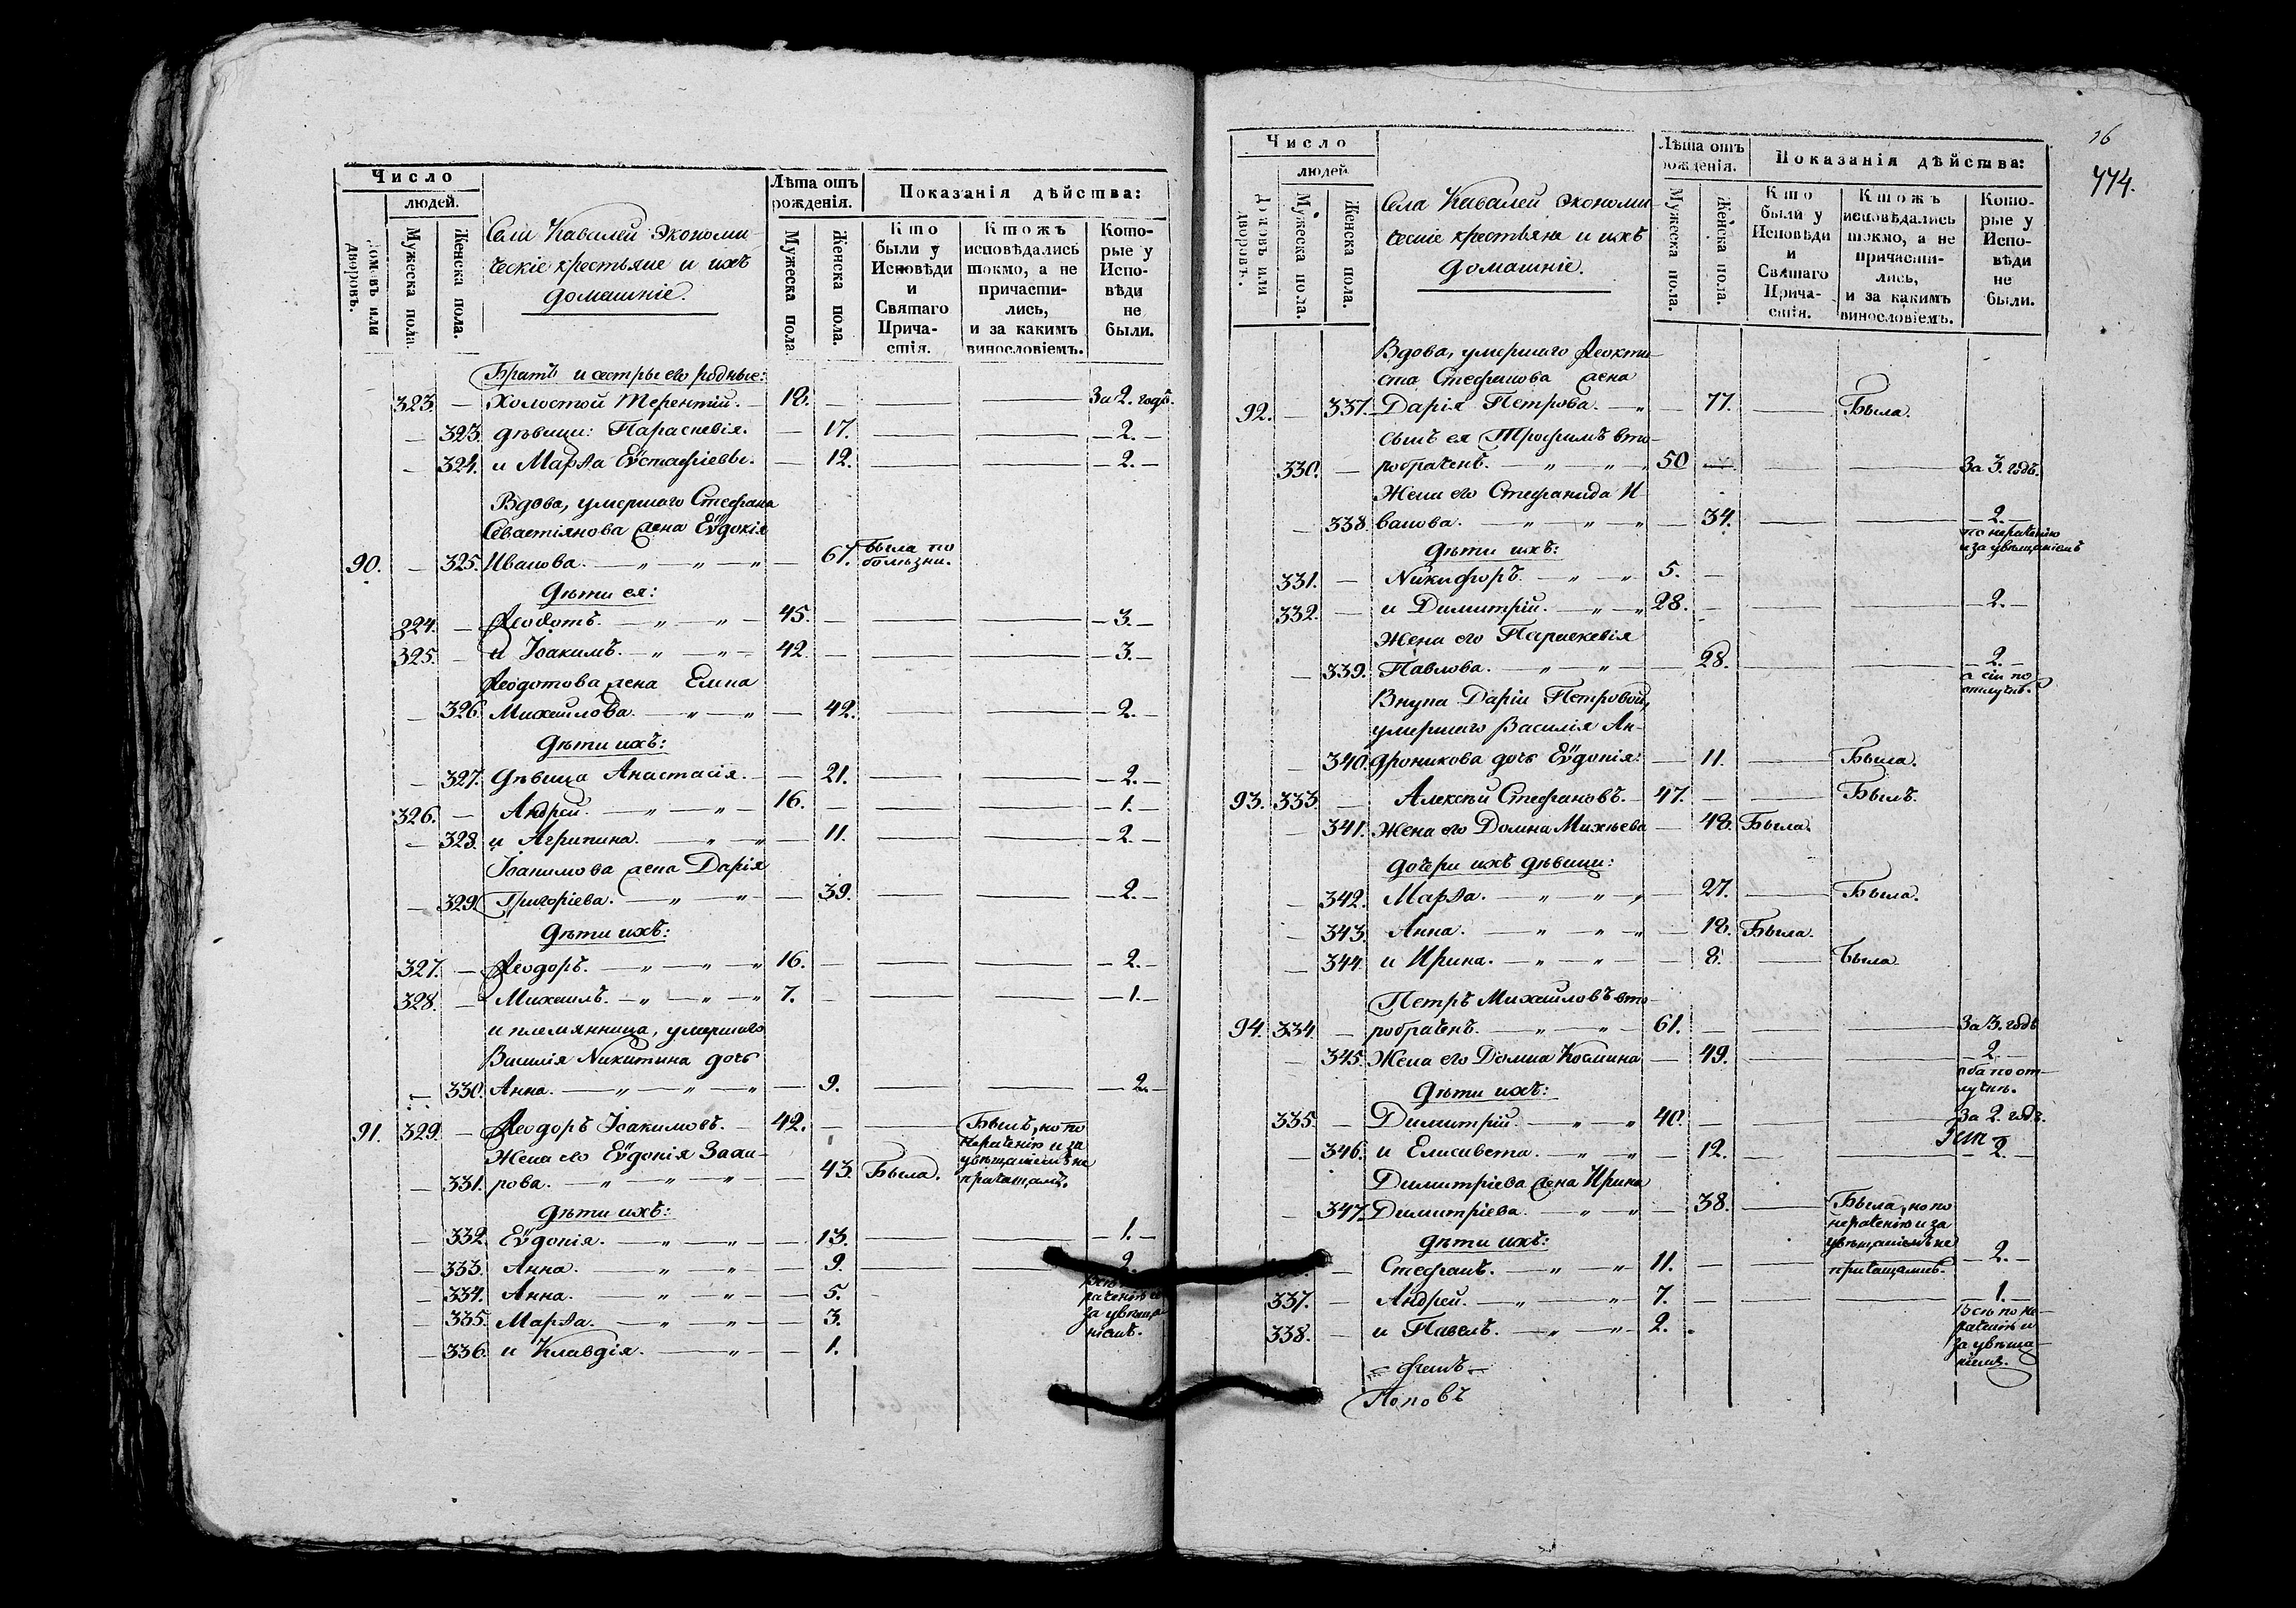 Число
людей.
Домовъ или дворовъ.
Мужеска пола.
Женска пола.
Села Кавалей Экономи-
ческіе крестьяне и ихъ
домашніе.
Лѣта отъ
рожденія.
Мужеска пола
Женска пола.
Показанія дѣйства:
Кто
были у
Исповѣди
и
Святаго
Прича-
стія.
Ктожъ
исповѣдались
токмо, а не
причасти-
лись,
и за какимъ
винословіемъ.
Кото-
рые у
Испо-
вѣди
не
были.
Братъ и сестры его родные:
323. — Холостой Терентій. — 18. — За 2. года.
— 323. дѣвицы: Параскевія. — 17. — 2. —
— 324. и Марѳа Еѵстафіевы. — 12. — 2. —
Вдова, умершаго Стефана
Севастіянова жена Еѵдокія
90. — 325. Иванова. — „ — „ — „ — 67. Была по
болѣзни.
Дѣти ея:
324. — Ѳеодотъ. — „ — „ — 45. — 3. —
325. — и Іоакимъ. — „ — „ — 42. — 3. —
Ѳеодотова жена Елена
— 326. Михайлова. — „ — „ — 42. — 2. —
Дѣти ихъ:
— 327. Дѣвица Анастасія. — 21. — 2. —
326. — Андрей. — „ — „ — 16. — 1. —
— 328. и Агрипина. — „ — „ — 11. — 2. —
Іоакимова жена Дарія
— 329. Григоріева. — „ — „ — 39. — 2. —
Дѣти ихъ:
327. — Ѳеодоръ. — „ — „ — „ 16. — 2. —
328. — Михаилъ. — „ — „ — „ 7. — 1. —
и племянница, умершаго
Василія Никитина дочь
— 330. Анна. — „ — „ — „ — 9. — 2. —
91. 329. — Ѳеодоръ Іоакимовъ. — 42. — Былъ, но по
нераченію и за
увѣщаніемъ не
причащалс.
Жена его Еѵдокія Заха-
— 331. рова. — „ — „ — „ — 43. Была.
Дѣти ихъ:
— 332. Еѵдокія. — „ — „ — 13. — 1. —
— 333. Анна. — „ — „ — 9. — 2. —
— 334. Анна. — „ — „ — 5.
за увѣща-
ніемъ.
— 335. Марѳа. — „ — „ — 3.
— 336. и Клавдія. — „ — 1.
16
774.
Число
людей.
Домовъ или дворовъ.
Мужеска пола.
Женска пола.
Села Кавалей Экономи-
ческіе крестьяне и ихъ
домашніе.
Лѣта отъ
рожденія.
Мужеска пола.
Женска пола.
Показанія дѣйства:
Кто
были у
Исповѣди
и
Святаго
Прича-
стія.
Ктожъ
исповѣдались
токмо, а не
причасти-
лись,
и за какимъ
винословіемъ.
Кото-
рые у
Испо-
вѣди
не
были.
Вдова, умершаго Ѳеокти-
ста Стефанова жена
92. — 337. Дарія Петрова. — „ — 77. — Была.
сынъ ея Трофимъ вто-
330. — робраченъ. — „ — „ — 50 — За 3. годъ.
Жена его Стефанида И-
— 338. ванова. — „ — „ — „ — 34. — 2. —
по нераченію
и за увѣщаніемъ
Дѣти ихъ:
331. — Никифоръ. — „ — „ 5. —
332. — и Димитрій. — „ — „ 28. — 2. —
Жена его Параскевія
— 339. Павлова. — „ — „ — 28. — 2. —
а сіи по
отлучкѣ.
Внука Даріи Петровой,
умершаго Василія Ан-
— 340. дроникова дочь Еѵдокія. — 11. — Была.
93. 333. — Алексѣй Стефановъ. — 47. — Былъ.
— 341. Жена его Домна Михѣева — 48. Была.
дочери ихъ дѣвицы:
— 342. Марѳа. — „ — „ — „ — 27. — Была.
— 343. Анна. — „ — „ — „ — 18. Была.
— 344. и Ирина. — „ — „ — 8. — Была
Петръ Михайловъ вто-
94. 334. — робраченъ. — „ — „ — 61. — За 3. годъ
— 345. Жена его Домна Космина — 49. — 2. —
оба по от-
лучкѣ.
Дѣти ихъ:
335. — Димитрій. — „ — „ 40. — За 2. года.
— 346. и Елисавета. — „ — „ — 12. — 2. —
Димитріева жена Ирина
— 347. Димитріева. — „ — „ — 38. — Была, но по
нераченію и за
увѣщаніемъ не
причащалась.
Дѣти ихъ:
— Стефанъ. — „ — „ 11. — 2. —
337. — Андрей. — „ — „ 7. — 1. —
338. — и Павелъ. — „ — „ 2.
Всѣ по не-
раченію и
за увѣща-
ніемъ.
Поповъ